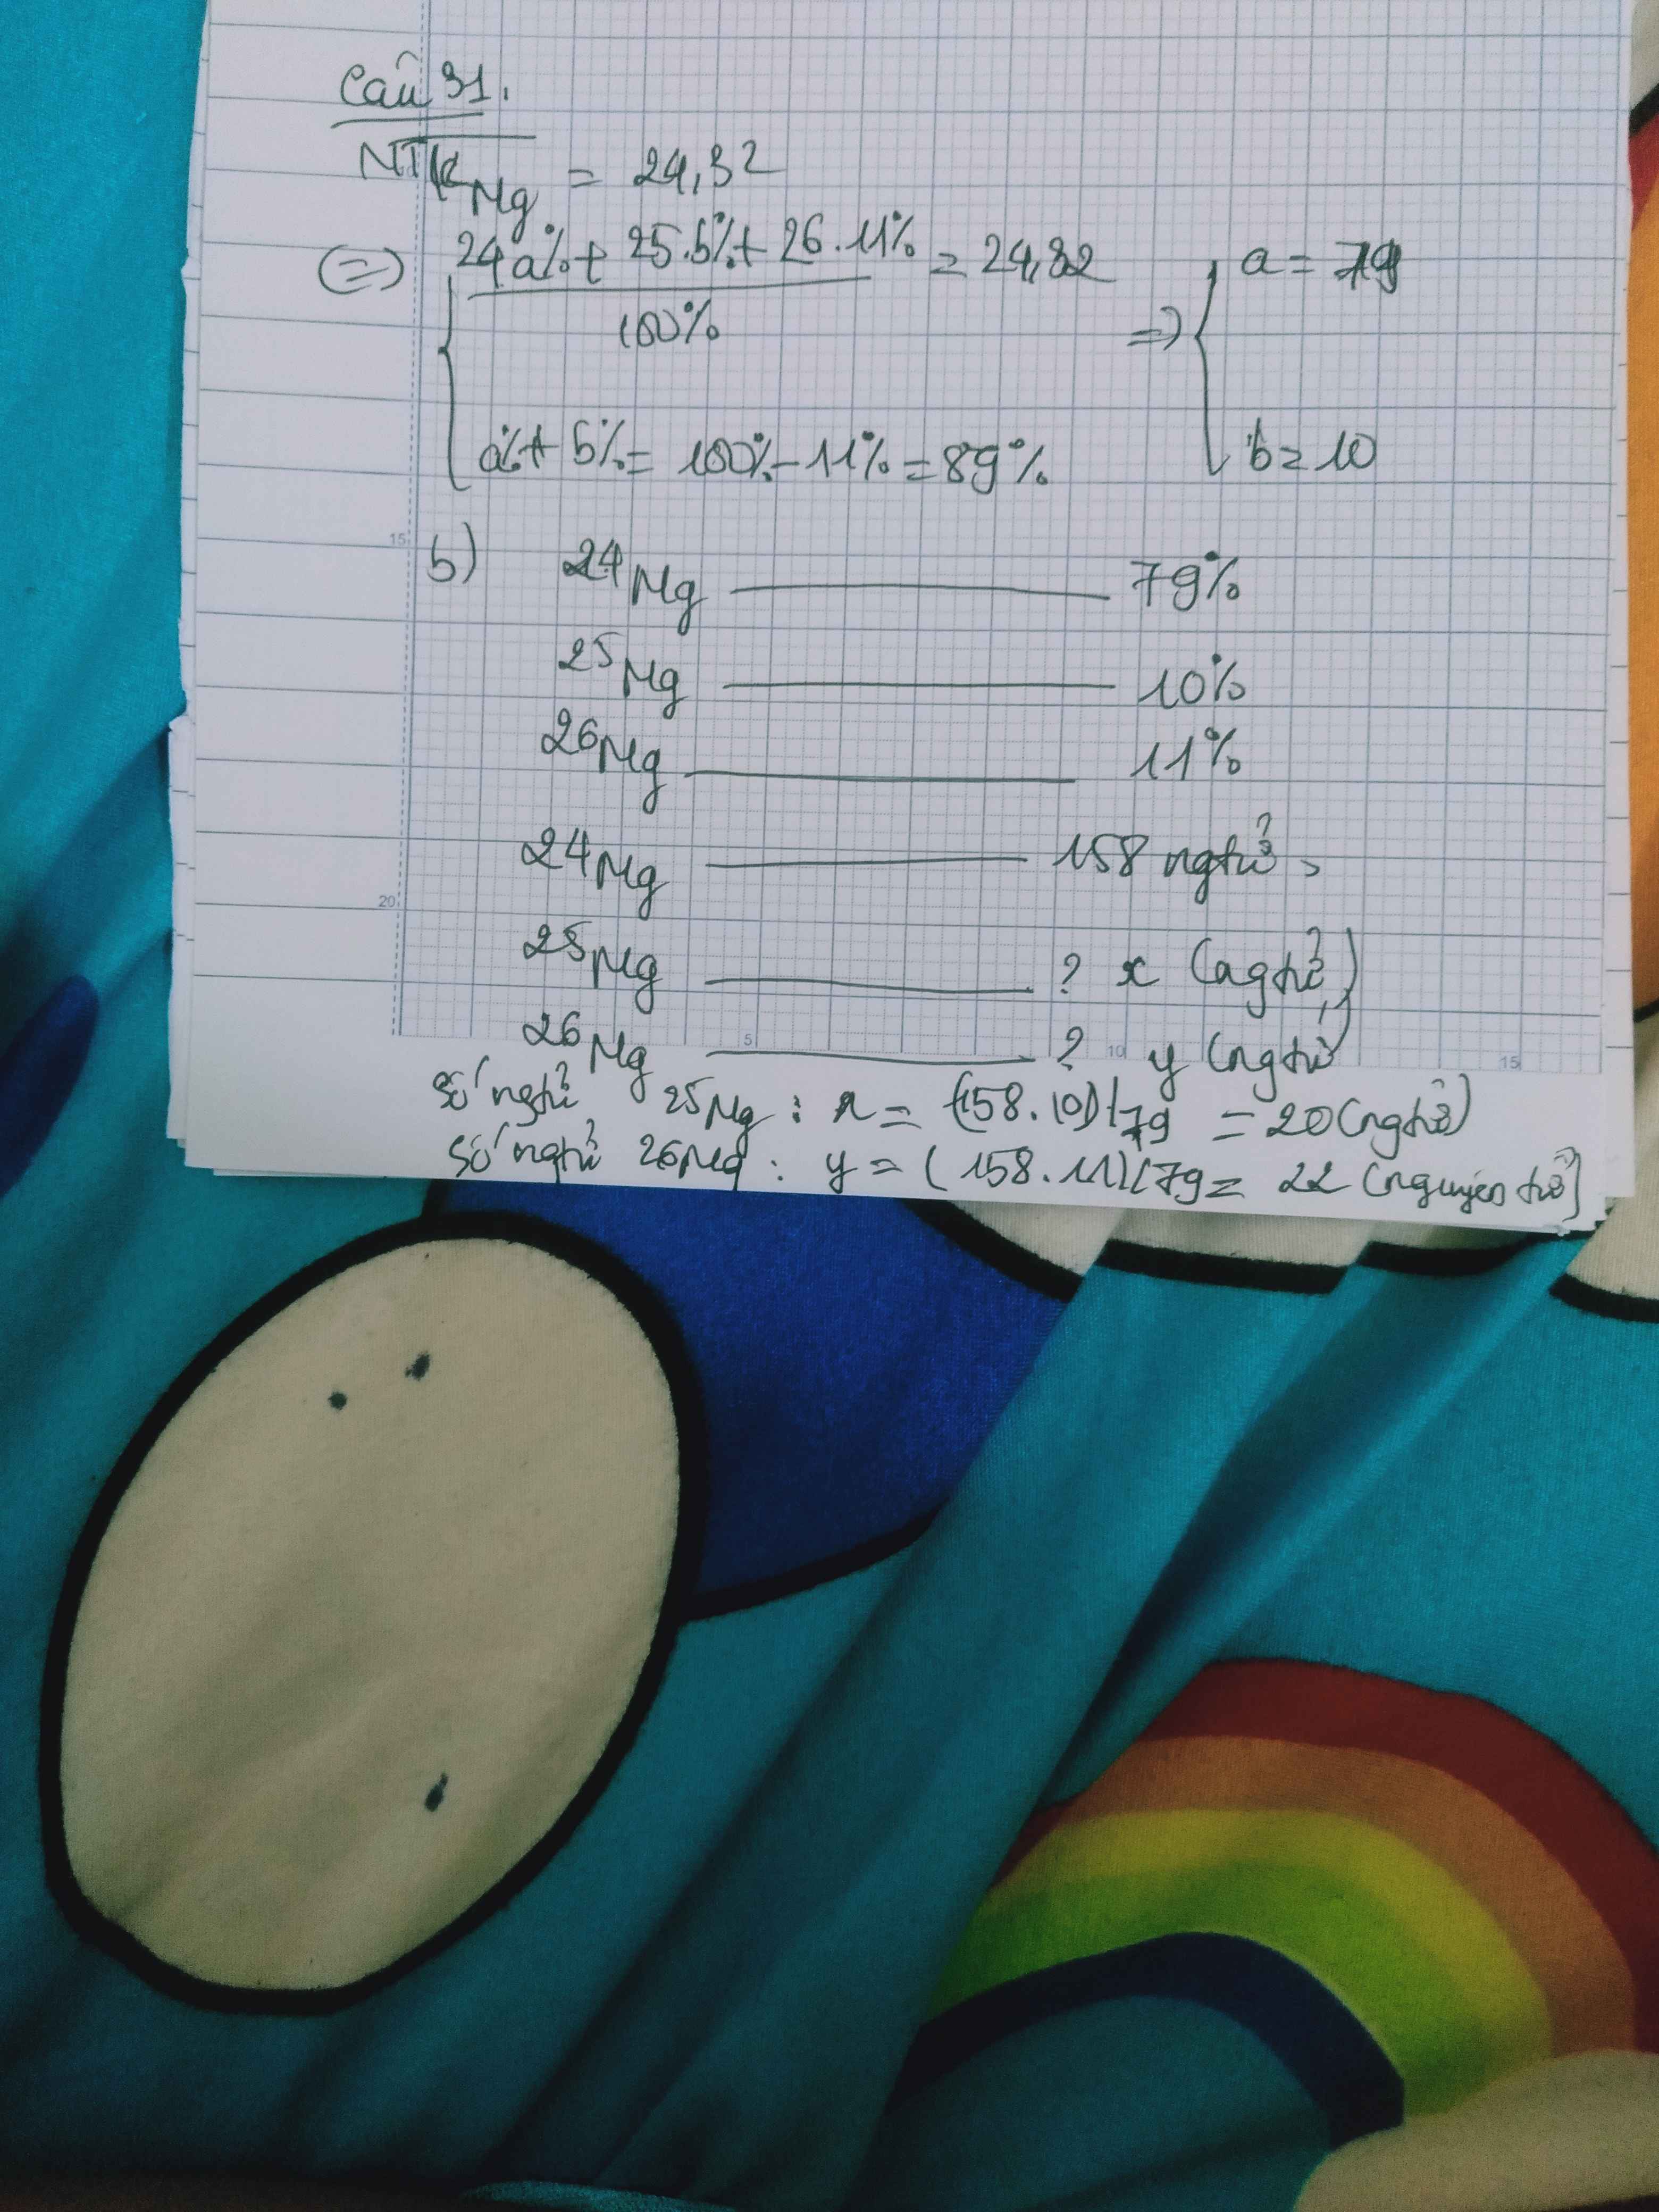 Câu 31.
NTK Mg = 24,32
(=) 24a% + 25.b% + 26.11% = 24,32 => a = 79
100%
a% + b% = 100% - 11% = 89% b = 10
15
b) 24Mg 79%
25Mg 10%
26Mg 11%
24Mg 158 ngtử
20
25Mg ? x (ngtử)
26Mg ? y (ngtử)
5 10 15
số ngtử 25Mg : x = (158.10)/79 = 20 (ngtử)
số ngtử 26Mg : y = (158.11)/79 = 22 (nguyên tử)